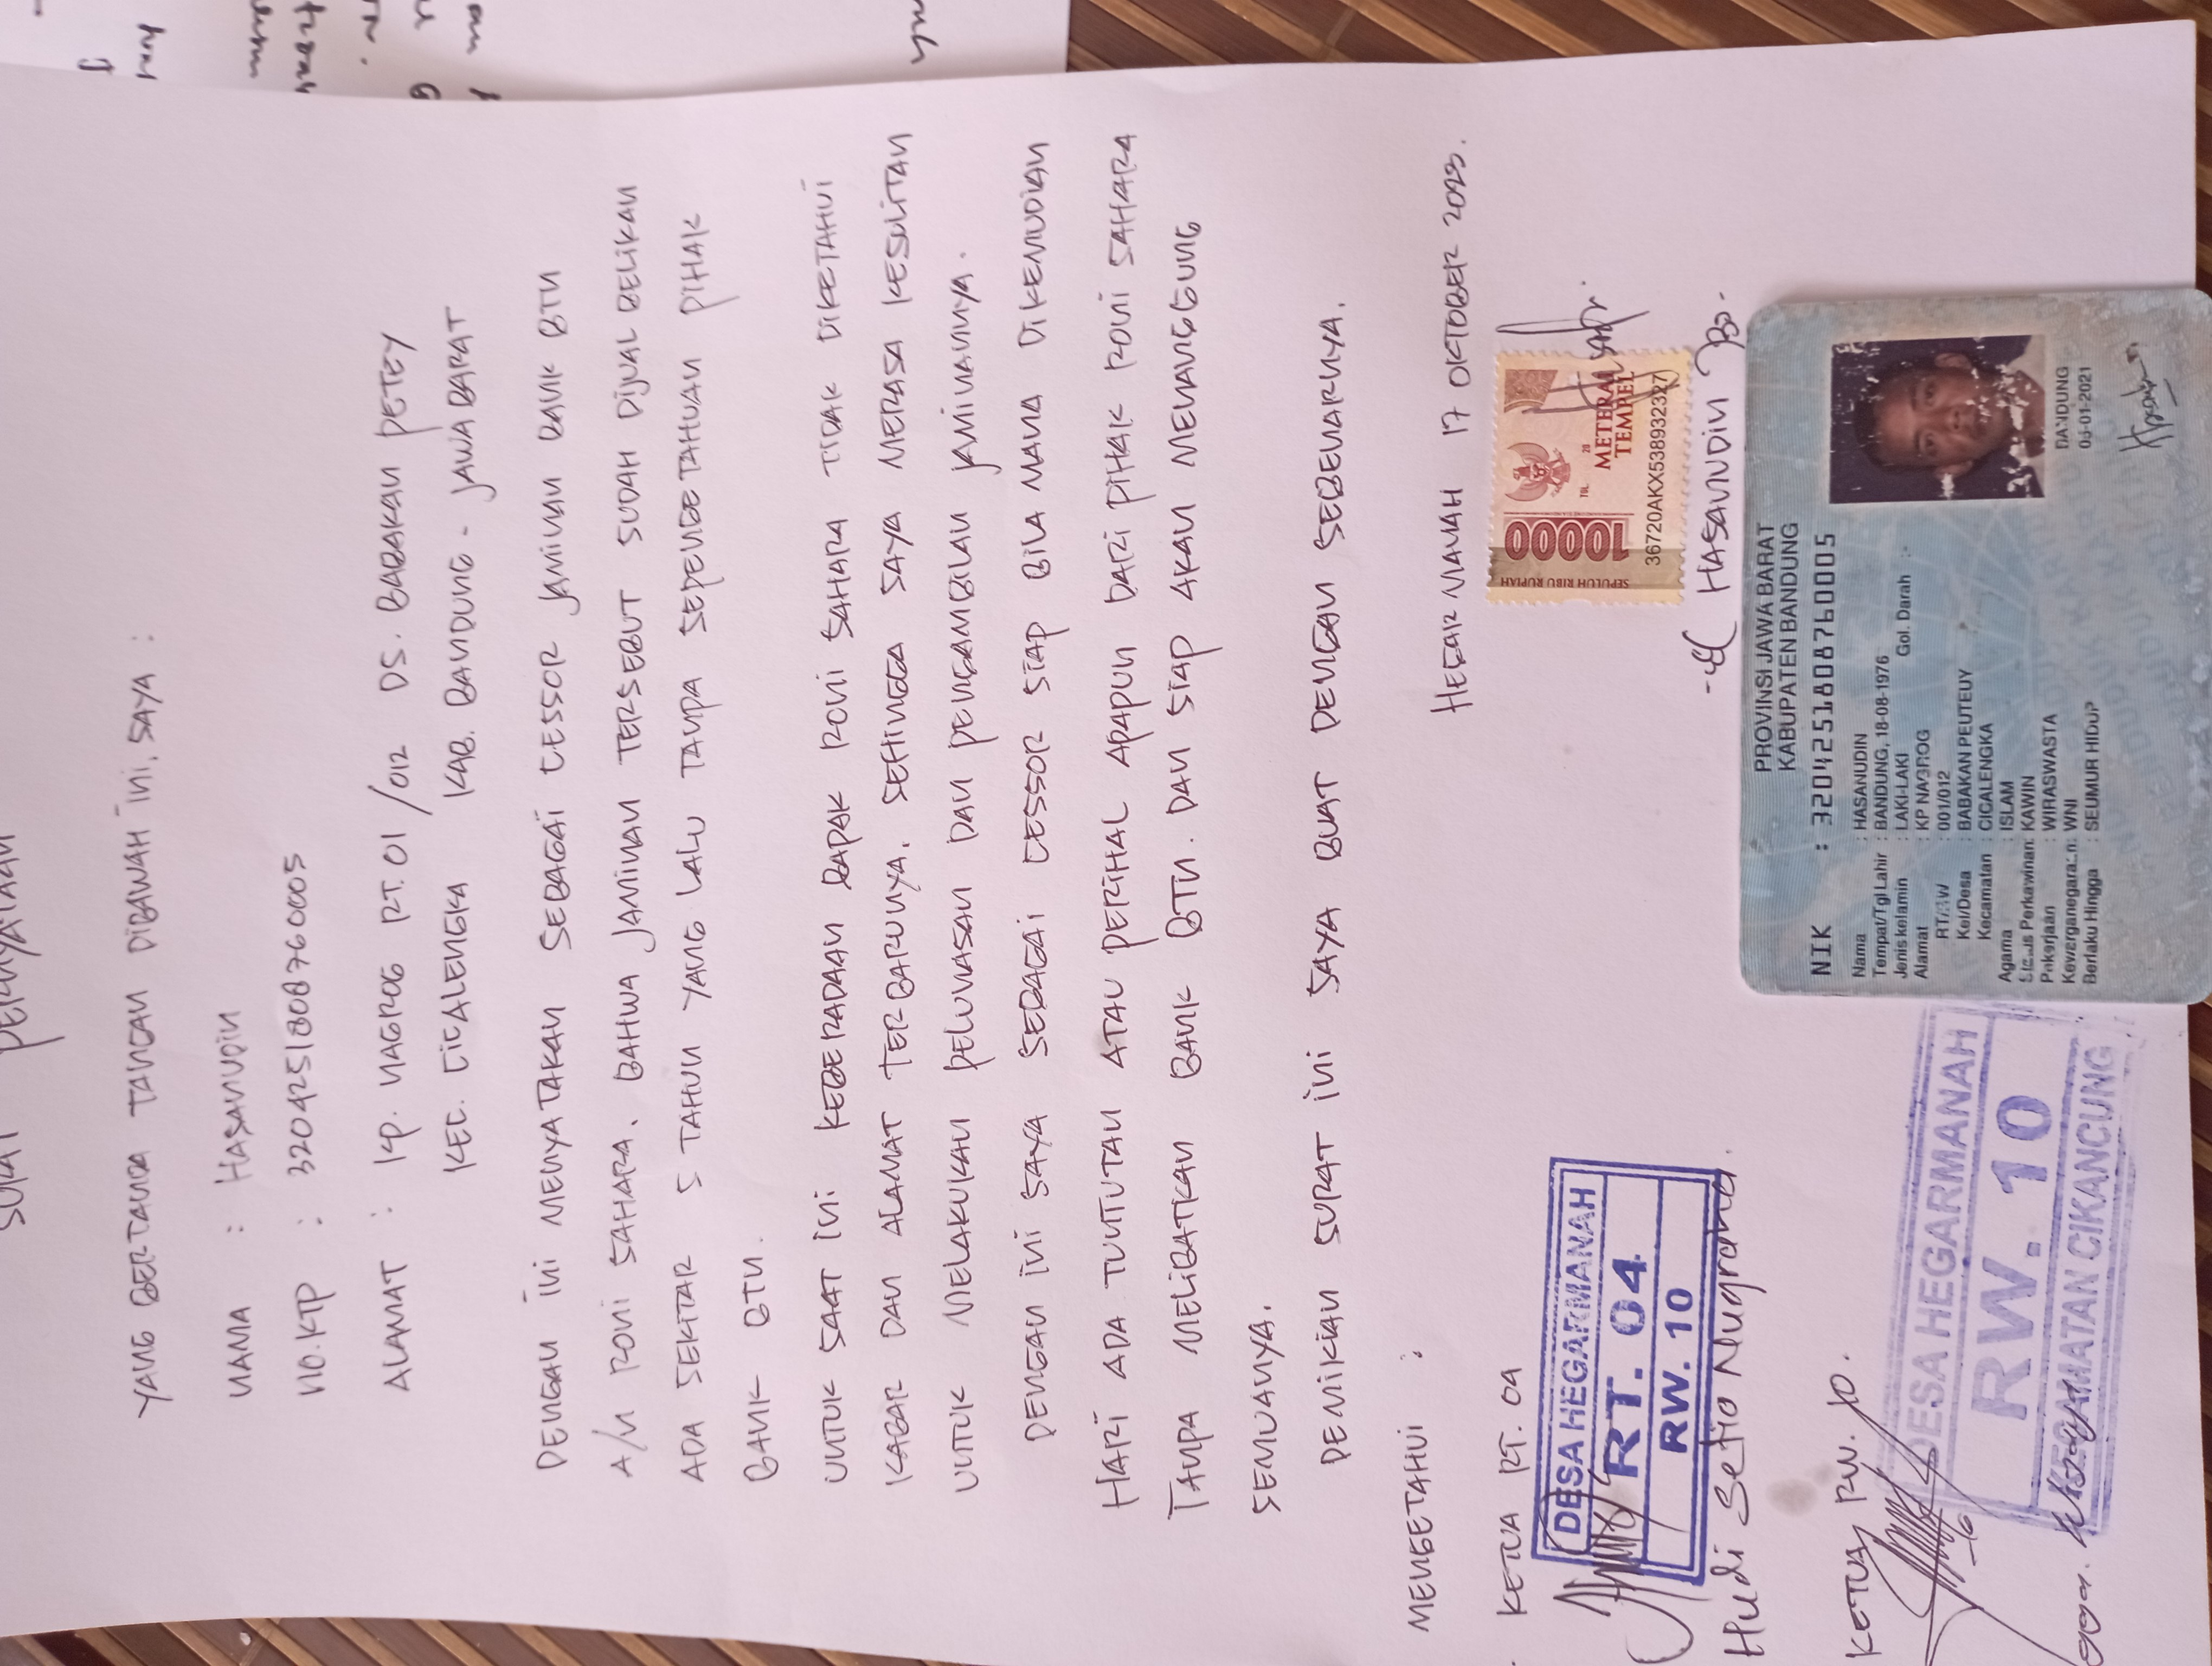 SURAT PERNYATAAN
YANG BERTANDA TANGAN DIBAWAH INI, SAYA :
NAMA : HASANUDIN
NO. KTP : 3204251808760005
ALAMAT : KP. NAGROG RT. 01/012 DS. BABAKAN PETEY
KEC. CICALENGKA KAB. BANDUNG - JAWA BARAT
DENGAN INI MENYATAKAN SEBAGAI CESSOR JAMINAN BANK BTN
A/N RONI SAHARA. BAHWA JAMINAN TERSEBUT SUDAH DIJUAL BELIKAN
ADA SEKITAR 5 TAHUN YANG LALU TANPA SEPENGETAHUAN PIHAK
BANK BTN.
UNTUK SAAT INI KEBERADAAN BAPAK RONI SAHARA TIDAK DIKETAHUI
KABAR DAN ALAMAT TERBARUNYA. SEHINGGA SAYA MERASA KESULITAN
UNTUK MELAKUKAN PELUNASAN DAN PENGAMBILAN JAMINANNYA.
DENGAN INI SAYA SEBAGAI CESSOR SIAP BILA MANA DIKEMUDIAN
HARI ADA TUNTUTAN ATAU PERIHAL APAPUN DARI PIHAK RONI SAHARA
TANPA MELIBATKAN BANK BTN. DAN SIAP AKAN MENANGGUNG
SEMUANYA.
DEMIKIAN SURAT INI SAYA BUAT DENGAN SEBENARNYA.
HEGAR MANAH 17 OKTOBER 2023.
MENGETAHUI :
KETUA RT. 04
DESA HEGARMANAH
RT. 04
RW. 10
Hudi Setio Nugraha.
KETUA RW. 10.
DESA HEGARMANAH
RW. 10
KECAMATAN CIKANCUNG
SEPULUH RIBU RUPIAH
10000
TGL. 20
METERAI
TEMPEL
36720AKX538932327
HASANUDIN
PROVINSI JAWA BARAT
KABUPATEN BANDUNG
NIK : 3204251808760005
Nama : HASANUDIN
Tempat/Tgl Lahir : BANDUNG, 18-08-1976
Jenis kelamin : LAKI-LAKI Gol. Darah : -
Alamat : KP NAGROG
RT/RW : 001/012
Kel/Desa : BABAKAN PEUTEUY
Kecamatan : CICALENGKA
Agama : ISLAM
Status Perkawinan: KAWIN
Pekerjaan : WIRASWASTA
Kewarganegaraan: WNI
Berlaku Hingga : SEUMUR HIDUP
BANDUNG
06-01-2021